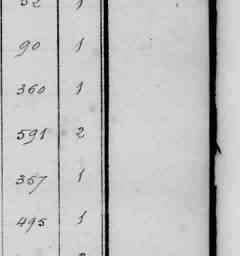 90 1
360 1
591 2
357 1
495 1